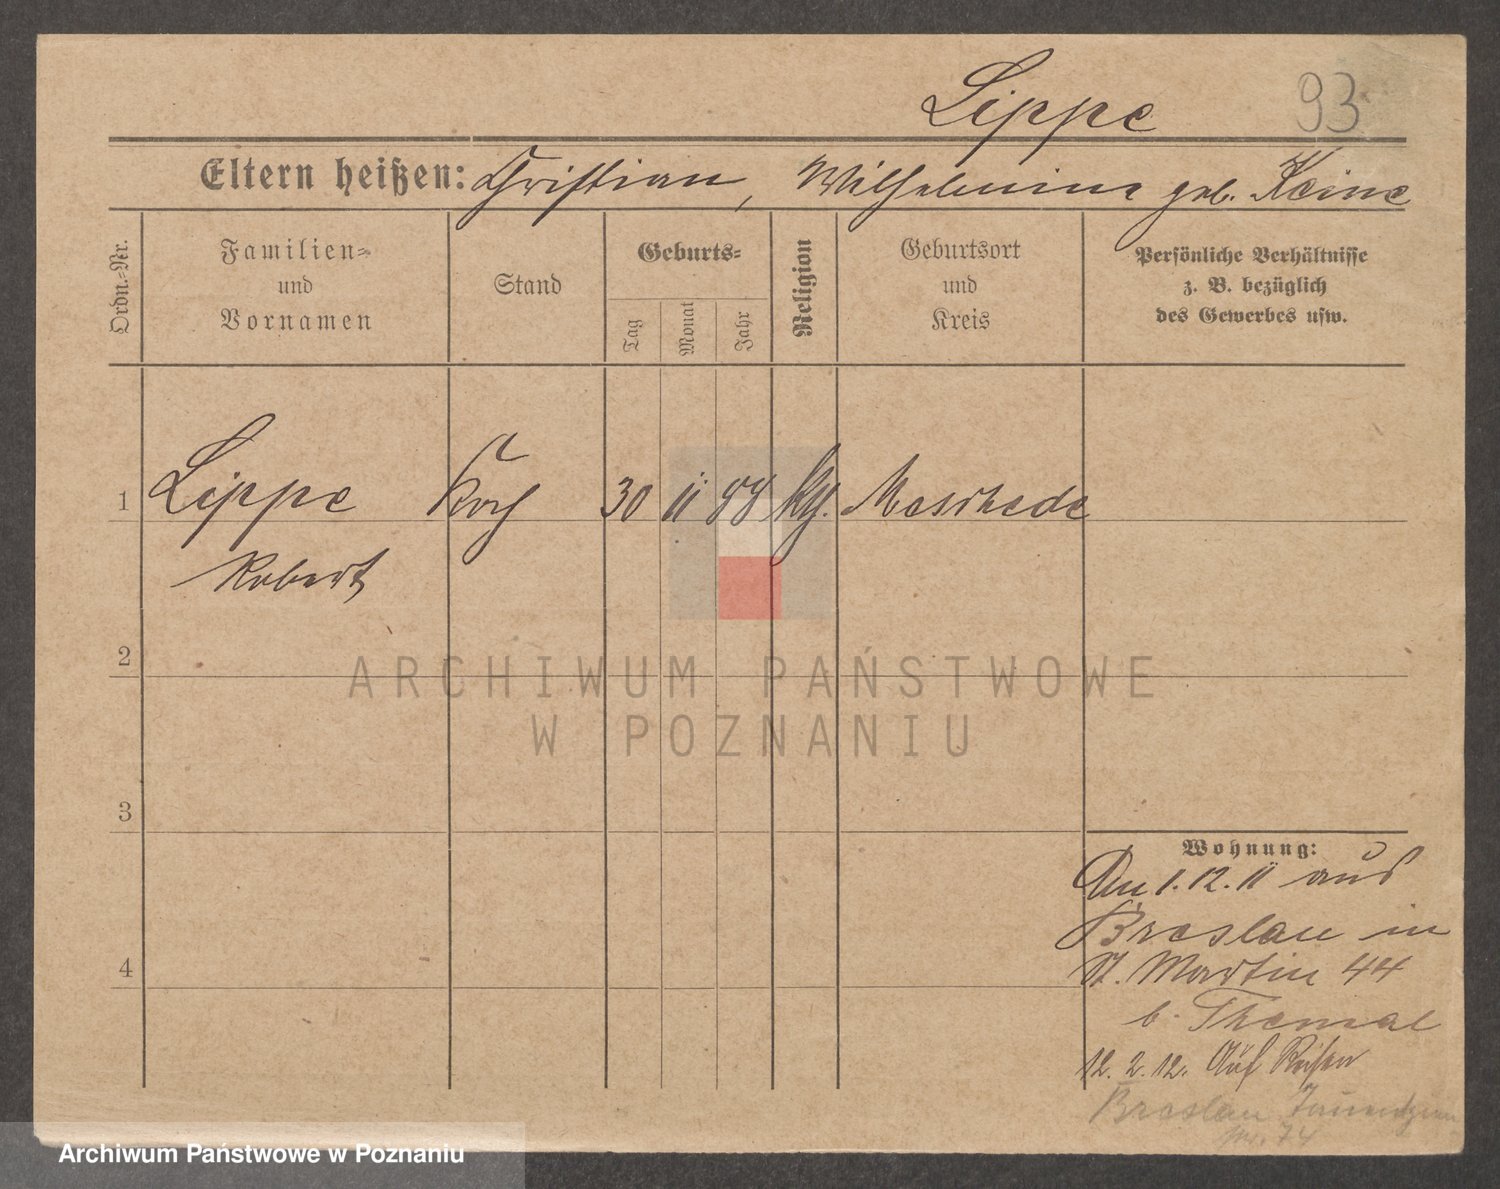 Lippe 93
Eltern heißen: Christian, Wilhelmine geb. Keine
Ordn.-Nr.
Familien-
und
Vornamen
Stand
Geburts-
Tag
Monat
Jahr
Religion
Geburtsort
und
Kreis
Persönliche Verhältnisse
z. B. bezüglich
des Gewerbes usw.
1 Lippe Koch 30 11 88 Meschede
Robert
2
ARCHIWUM PAŃSTWOWE
W POZNANIU
3
Wohnung:
Am 1.12.11 aus
Breslau in
St. Martin 44
b. Themal
4
12.2.12. Auf Reisen
Breslau
74
Archiwum Państwowe w Poznaniu